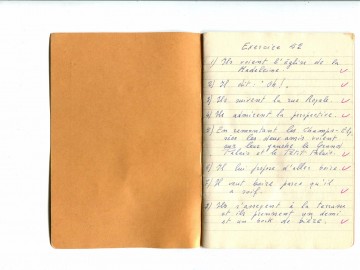 Exercice 42
1) Ils voient l'église de la
Madeleine.
2) Il dit: "Oh!"
3) Ils suivent la rue Royale.
4) Ils admirent la perspective.
5) En remontant les Champs-Ely-
sées les deux amis voient
par leur gauche le Grand
Palais et le Petit Palais.
6) Il lui propose d'aller boire.
7) Il veut boire parce qu'il
a soif.
8) Ils s'assoyent à la terrasse
et ils prennent un demi
et un bock de bière.